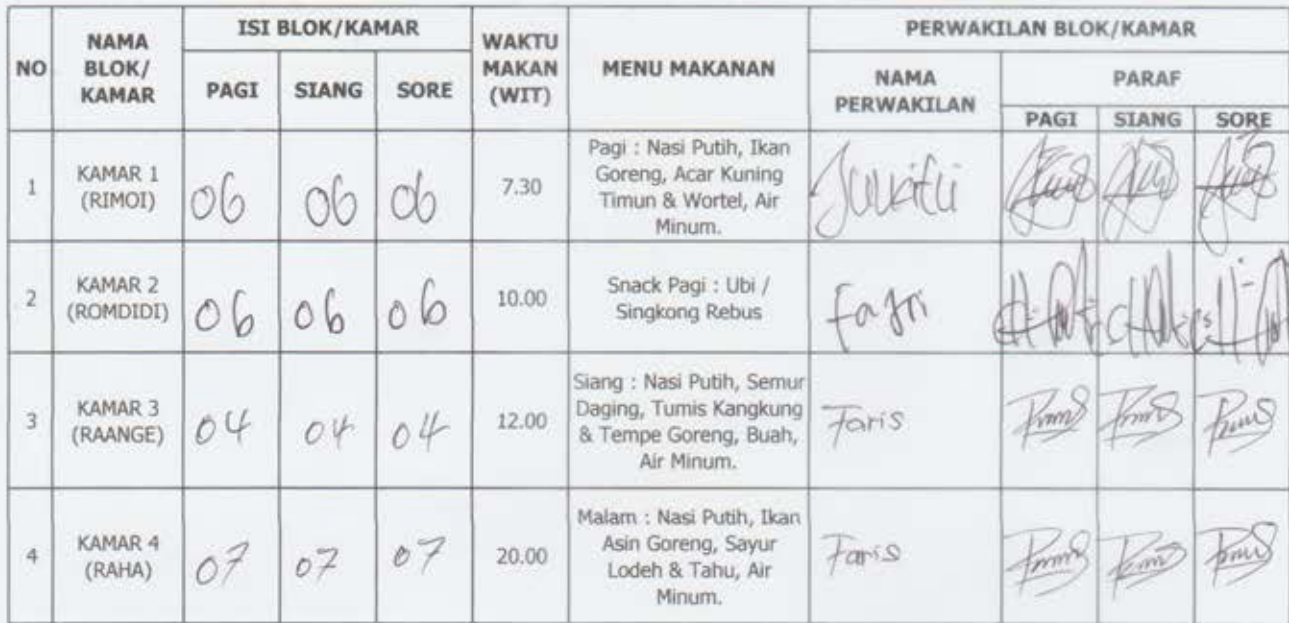 NO
NAMA BLOK/ KAMAR
ISI BLOK/KAMAR
PAGI SIANG SORE
WAKTU MAKAN (WIT)
MENU MAKANAN
PERWAKILAN BLOK/KAMAR
NAMA PERWAKILAN
PARAF
PAGI SIANG SORE
1
KAMAR 1
(RIMOI)
06 06 06
7.30
Pagi : Nasi Putih, Ikan
Goreng, Acar Kuning
Timun & Wortel, Air
Minum.
2
KAMAR 2
(ROMDIDI)
06 06 06
10.00
Snack Pagi : Ubi /
Singkong Rebus
Fajri
3
KAMAR 3
(RAANGE)
04 04 04
12.00
Siang : Nasi Putih, Semur
Daging, Tumis Kangkung
& Tempe Goreng, Buah,
Air Minum.
Faris
4
KAMAR 4
(RAHA)
07 07 07
20.00
Malam : Nasi Putih, Ikan
Asin Goreng, Sayur
Lodeh & Tahu, Air
Minum.
Faris